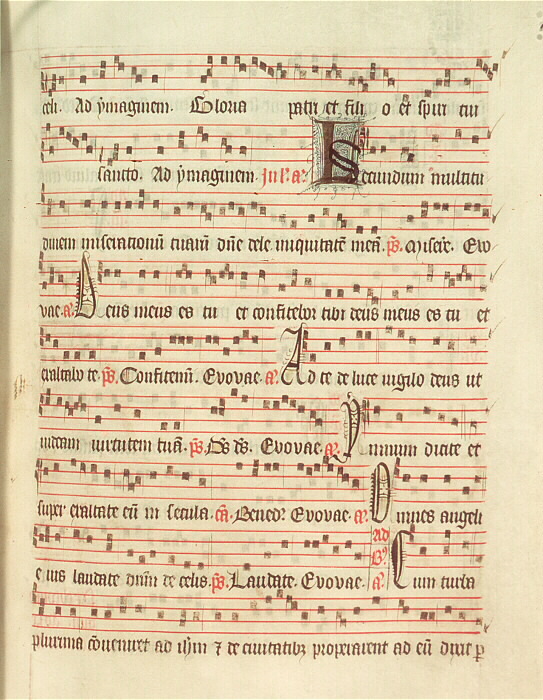 celi. Ad ymaginem. Gloria patri et fili o et spiri tui
sancto. Ad ymaginem In l. a. Secundum multitu
dinem miserationū tuarū dñe dele iniquitatē meā. ps. Misere. Evo
vae. a. Deus meus es tu et confitebor tibi deus meus es tu et
exaltabo te. ps. Confitemī. Evovae. a. Ad te de luce vigilo deus ut
videam virtutem tuā. ps. Ds ds. Evovae. a. Ymnum dicite et
super exaltate eū in secula. cā. Bened. Evovae. a. Omnes angeli
eius laudate dnm de celis. ps. Laudate. Evovae. Ad B. a. Cum turba
plurima cōveniret ad ihm 7 de civitatibz properarent ad eū dixit p